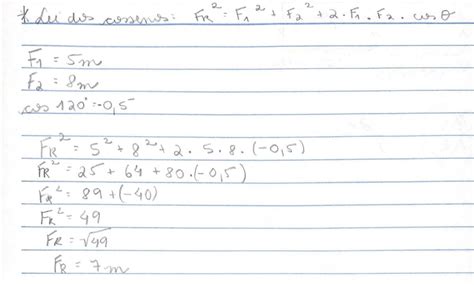 * Lei dos cossenos: FR² = F1² + F2² + 2 . F1 . F2 . cos θ
F1 = 5m
F2 = 8m
cos 120° = -0,5
FR² = 5² + 8² + 2 . 5 . 8 . (-0,5)
FR² = 25 + 64 + 80 . (-0,5)
FR² = 89 + (-40)
FR² = 49
FR = √49
FR = 7m